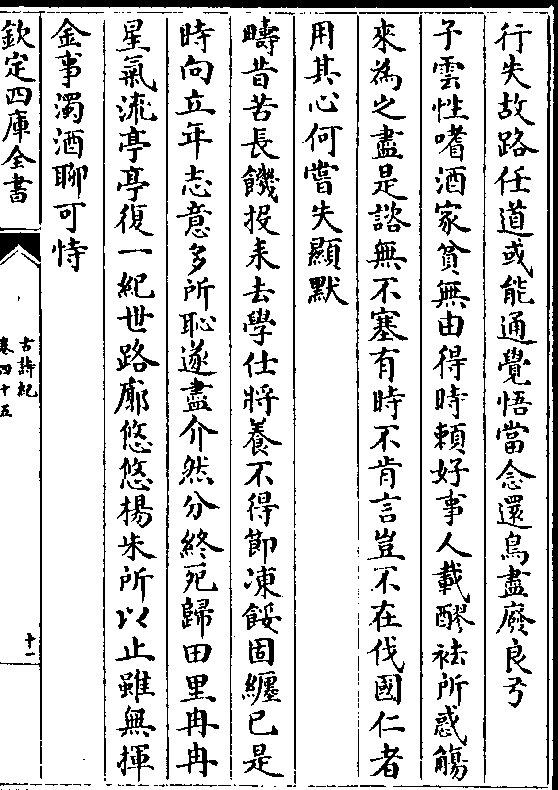 行失故路任道或能通覺悟當念還鳥盡廢良弓
子雲性嗜酒家貧無由得時賴好事人載醪袪所惑觴
來為之盡是諮無不塞有時不肯言豈不在伐國仁者
用其心何嘗失顯默
疇昔苦長饑投耒去學仕將養不得節凍餒固纒已是
時向立年志意多所恥遂盡介然分終死歸田里冉冉
星氣流亭亭復一紀世路廓悠悠楊朱所以止雖無揮
金事濁酒聊可恃
欽定四庫全書
古詩紀
卷四十五
十一